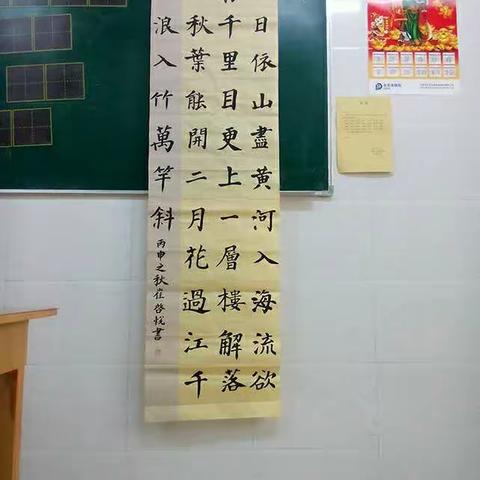 日依山盡黃河入海流欲
千里目更上一層樓解落
秋葉能開二月花過江千
浪入竹萬竿斜
丙申之秋崔啓悦書